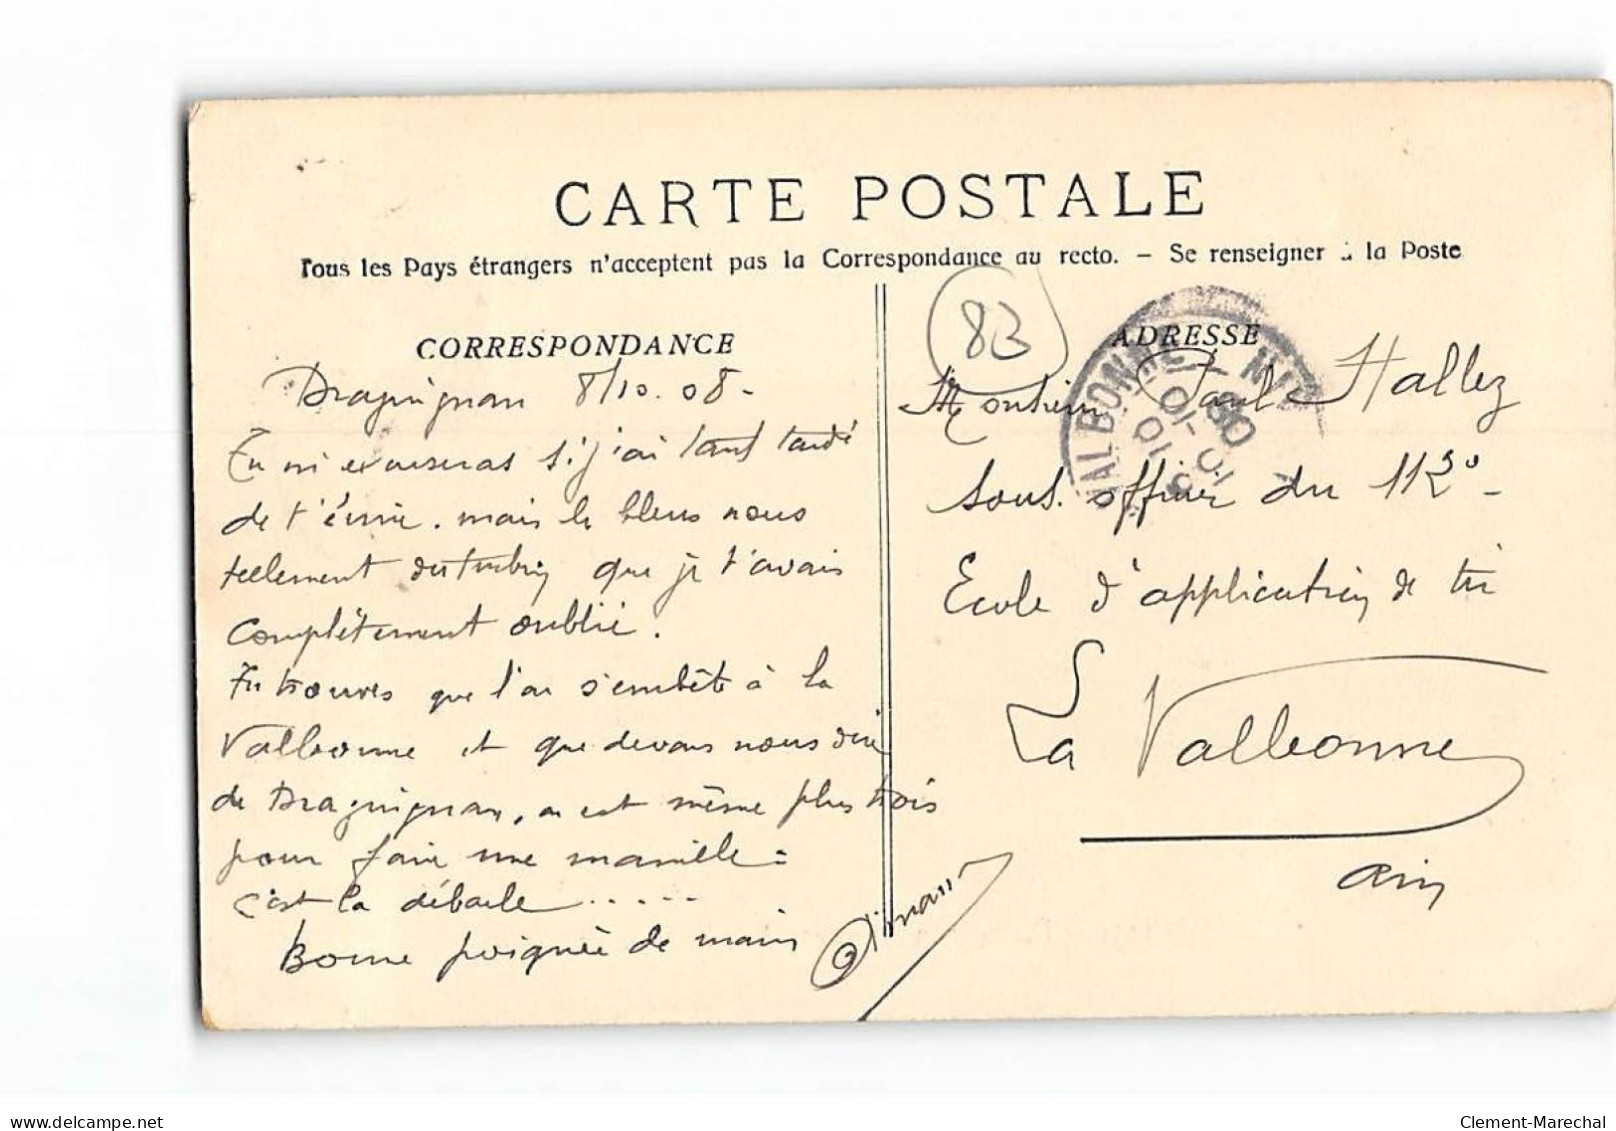 CARTE POSTALE
Tous les Pays étrangers n'acceptent pas la Correspondance au recto. - Se renseigner à la Poste
CORRESPONDANCE
Draguignan 8/10.08-
Tu m'excuseras si j'ai tant tardé
de t'écrire. mais les bleus nous
tellement que je t'avais
complètement oublié.
Tu trouves que l'on s'embête à la
Valbonne et que devons nous dire
de Draguignan, on est même plus trois
pour faire une manille =
c'est la débacle.....
Bonne poignée de main
83
ADRESSE
Monsieur Paul Hallez
Sous. officier du 112°-
Ecole d'application de tir
La Valbonne
Ain
VALBONNE
AIN
delcampe.net
Clement-Marechal